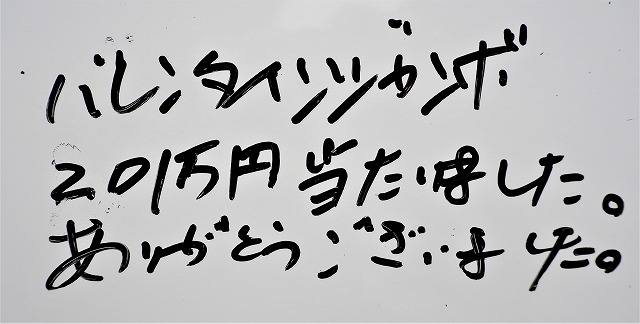 バレンタインジャンボ
201万円当たりました。
ありがとうございました。